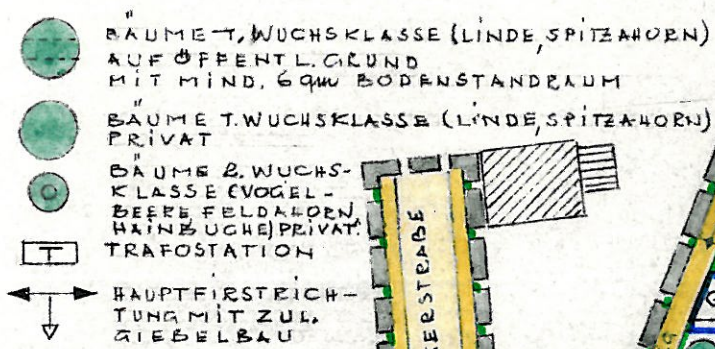 BÄUME 1. WUCHSKLASSE (LINDE, SPITZAHORN)
AUF ÖFFENTL. GRUND
MIT MIND. 6 qm BODENSTANDRAUM
BÄUME 1. WUCHSKLASSE (LINDE, SPITZAHORN)
PRIVAT
BÄUME 2. WUCHS-
KLASSE (VOGEL-
BEERE FELDAHORN,
HAINBUCHE) PRIVAT.
T TRAFOSTATION
HAUPTFIRSTRICH-
TUNG MIT ZUL.
GIEBELBAU
ERSTRAßE